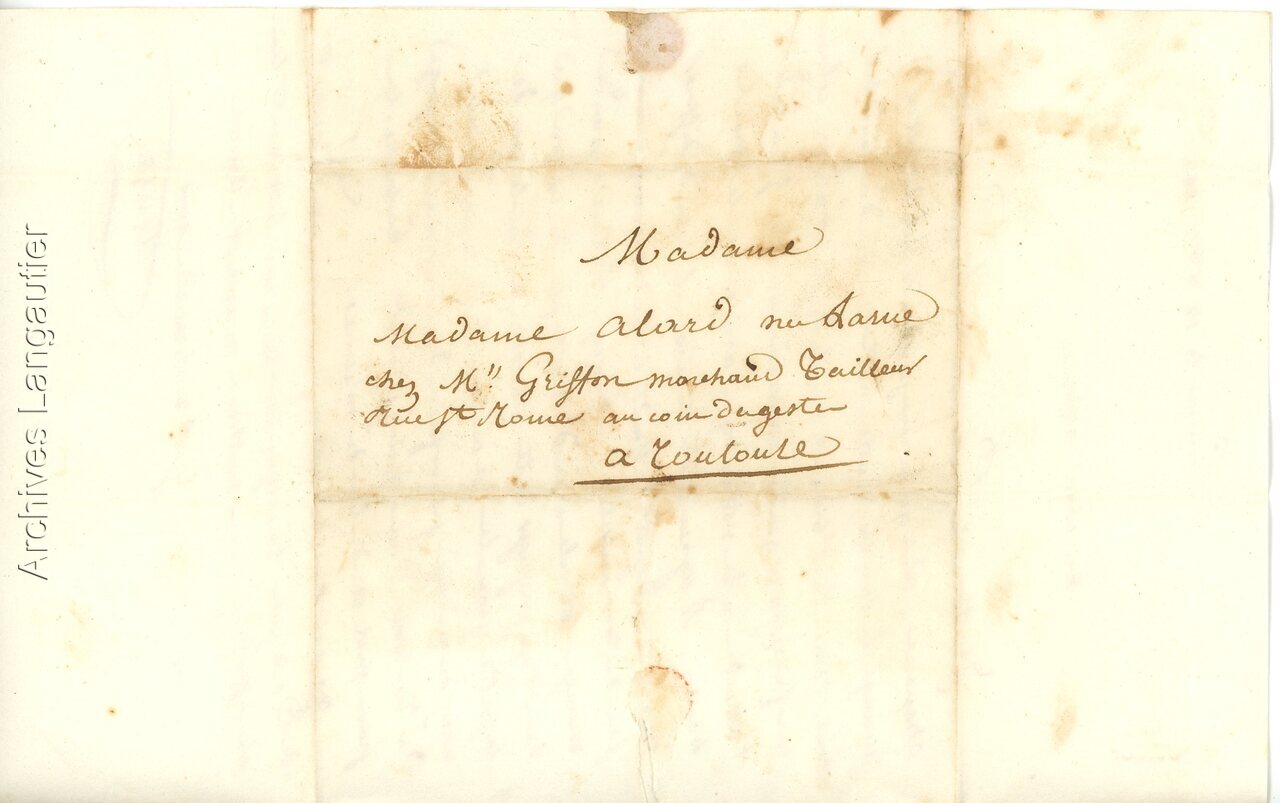 Madame
Madame Alard née
chez Mr Griffon marchand Tailleur
Rue St Rome au coin du geste
a Toulouse
Archives Langautier